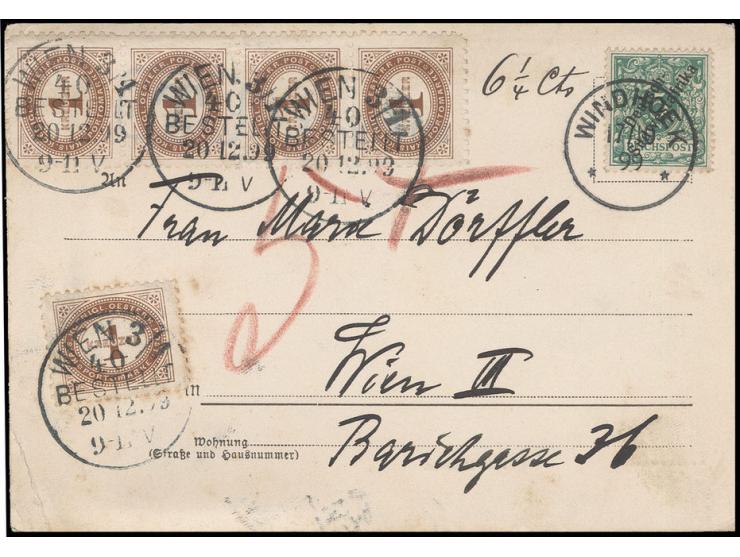 WIEN 3/4
40
BESTELLT
20.12.99
9-11 V
WIEN 3/4
40
BESTELLT
20.12.99
9-11 V
WIEN 3/4
40
BESTELLT
20.12.99
9-11 V
1 1 1 1
6 1/4 Cts
WINDHOEK
17
99
REICHSPOST
5 x
An
Frau Marie Dörffler
WIEN 3/4
40
BESTELLT
20.12.99
9-11 V
1
in
Wien III
Wohnung
(Straße und Hausnummer)
Barichgasse 36